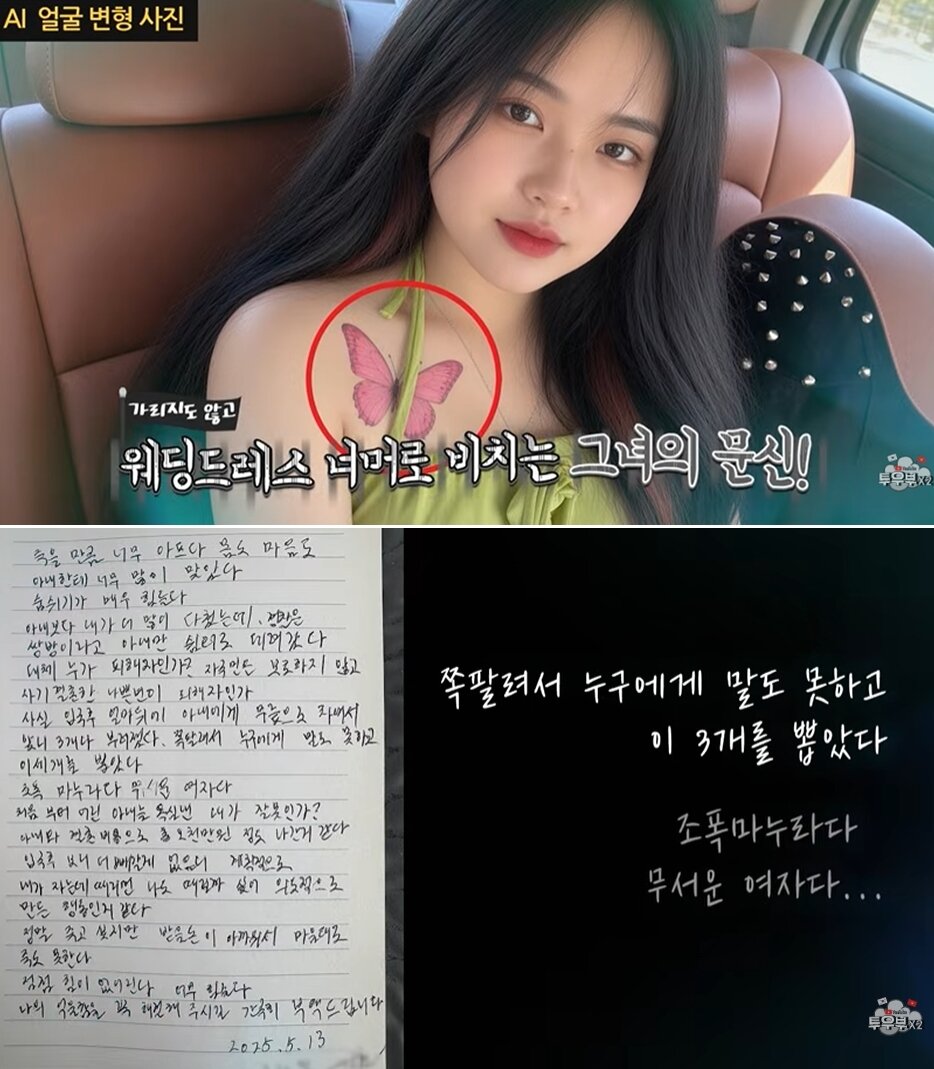 AI 얼굴 변형 사진
가리지도 않고
웨딩드레스 너머로 비치는 그녀의 문신!
투우부X2
죽을 만큼 너무 아프다 몸도 마음도
아내한테 너무 많이 맞았다
숨쉬기가 매우 힘들다
아내보다 내가 더 많이 다쳤는데, 경찰은
쌍방이라고 아내만 쉼터로 데려갔다
대체 누가 피해자인가? 자국민은 보호하지 않고
사기 결혼한 나쁜년이 피해자인가
사실 입국후 얼마뒤에 아내에게 무릎으로 차여서
앞니 3개나 부러졌다. 쪽팔려서 누구에게 말도 못하고
이세개를 뽑았다
조폭 마누라다 무서운 여자다
처음 부터 어린 아내를 욕심낸 내가 잘못인가?
아내와 결혼 비용으로 총 오천만원 정도 나간거 같다
입국후 보니 더 빼갈게 없으니 계획적으로
내가 자는데 때리면 나도 때릴까 싶어 의도적으로
만든 행동인거 같다
정말 죽고 싶지만 받을돈이 아까워서 마음대로
죽도 못한다
점점 힘이 없어진다 너무 힘들다
나의 억울함을 꼭 해결해 주시길 간곡히 부탁드립니다
2025.5.13
쪽팔려서 누구에게 말도 못하고
이 3개를 뽑았다
조폭마누라다
무서운 여자다...
투우부X2